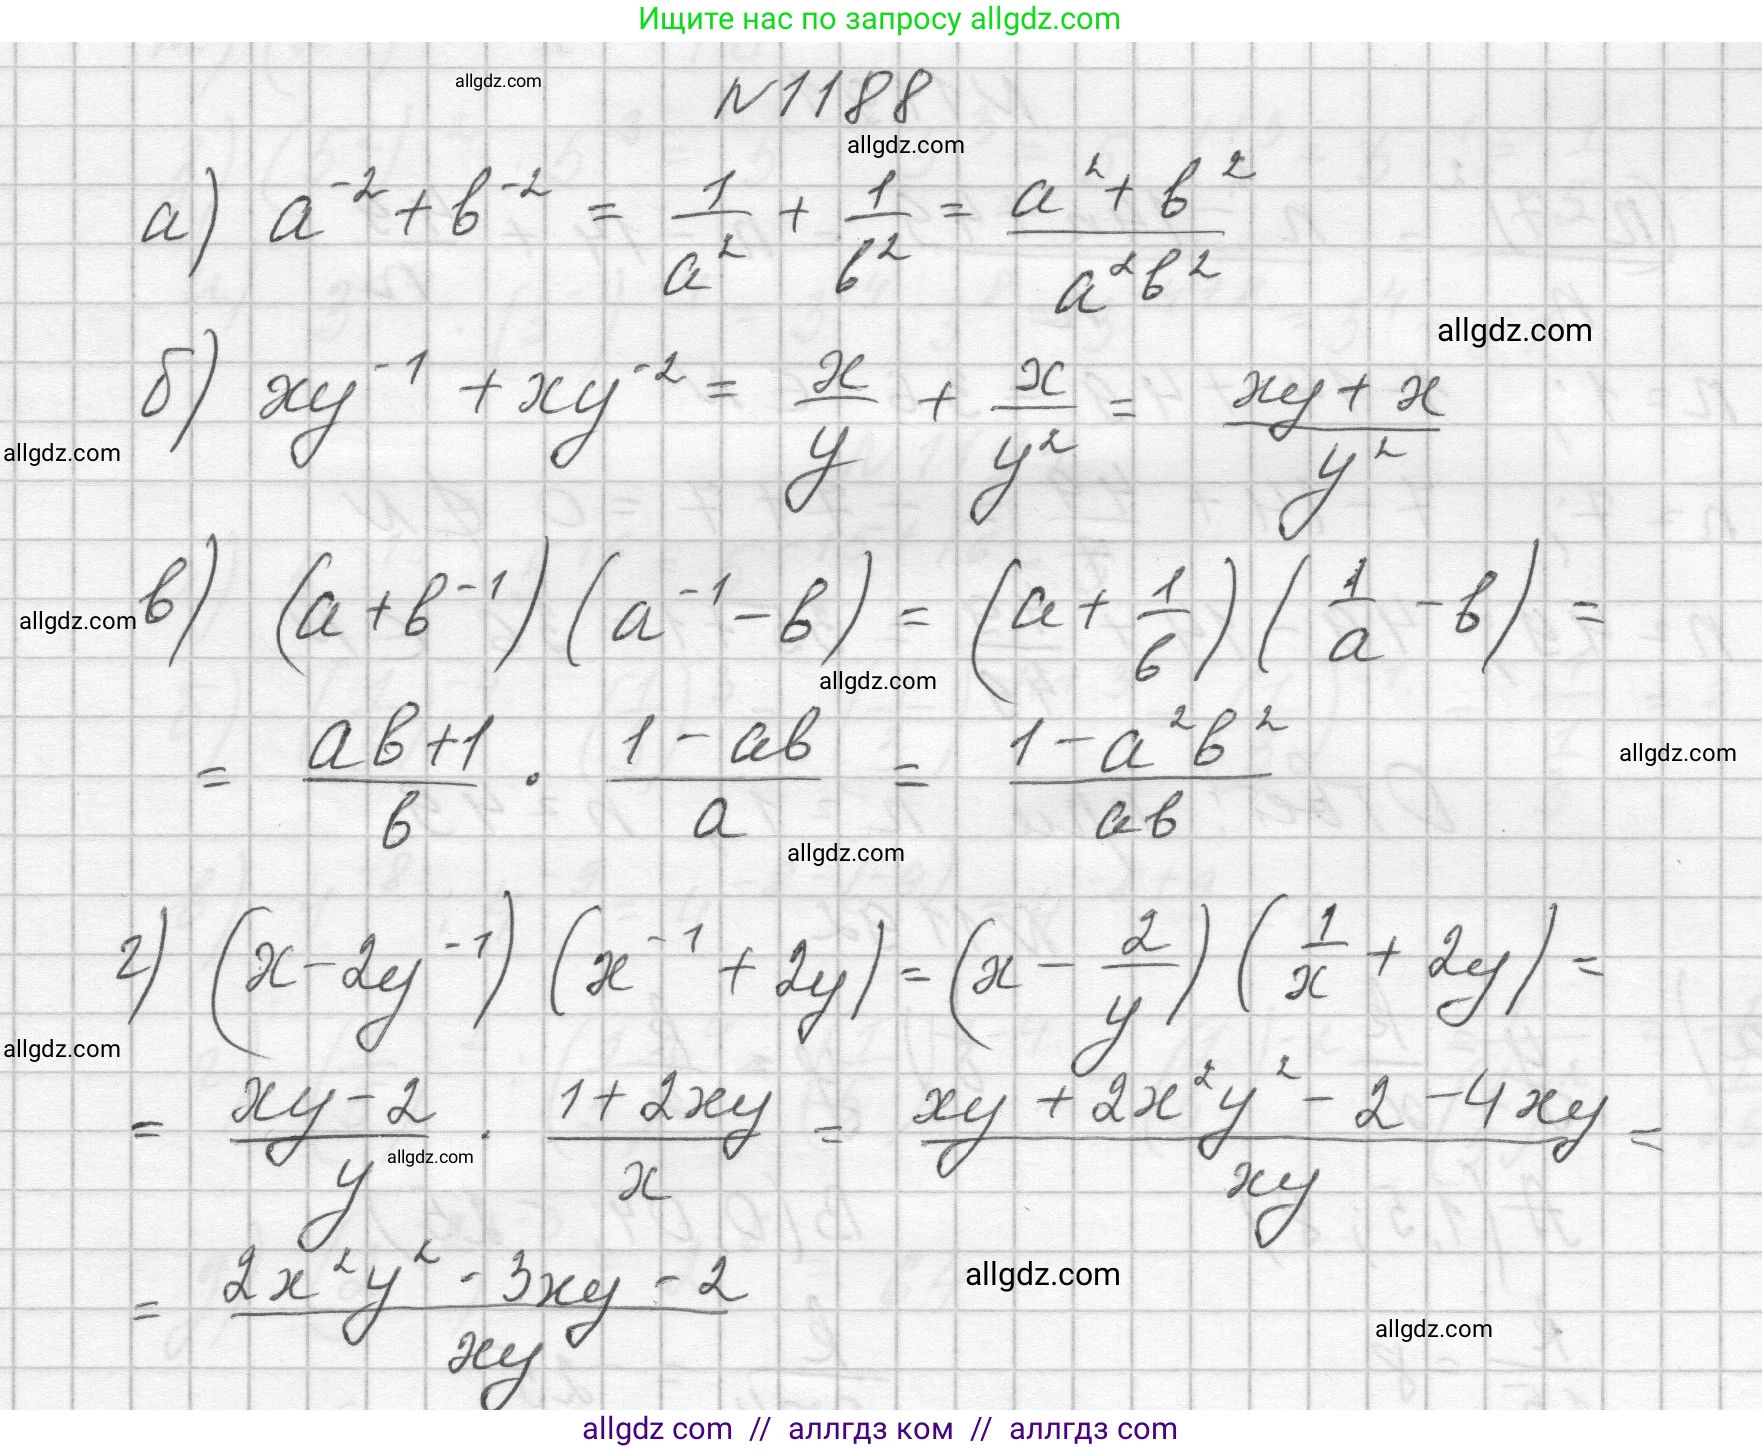 Ищите нас по запросу allgdz.com
allgdz.com
N1188
allgdz.com
а) a⁻² + b⁻² = 1/a² + 1/b² = (a² + b²)/(a²b²)
allgdz.com
б) xy⁻¹ + xy⁻² = x/y + x/y² = (xy + x)/y²
allgdz.com
в) (a + b⁻¹)(a⁻¹ − b) = (a + 1/b)(1/a − b) =
allgdz.com
allgdz.com
= (ab + 1)/b · (1 − ab)/a = (1 − a²b²)/(ab)
allgdz.com
allgdz.com
г) (x − 2y⁻¹)(x⁻¹ + 2y) = (x − 2/y)(1/x + 2y) =
allgdz.com
= (xy − 2)/y · (1 + 2xy)/x = (xy + 2x²y² − 2 − 4xy)/(xy) =
allgdz.com
= (2x²y² − 3xy − 2)/(xy)
allgdz.com
allgdz.com
allgdz com // аллгдз ком // аллгдз com